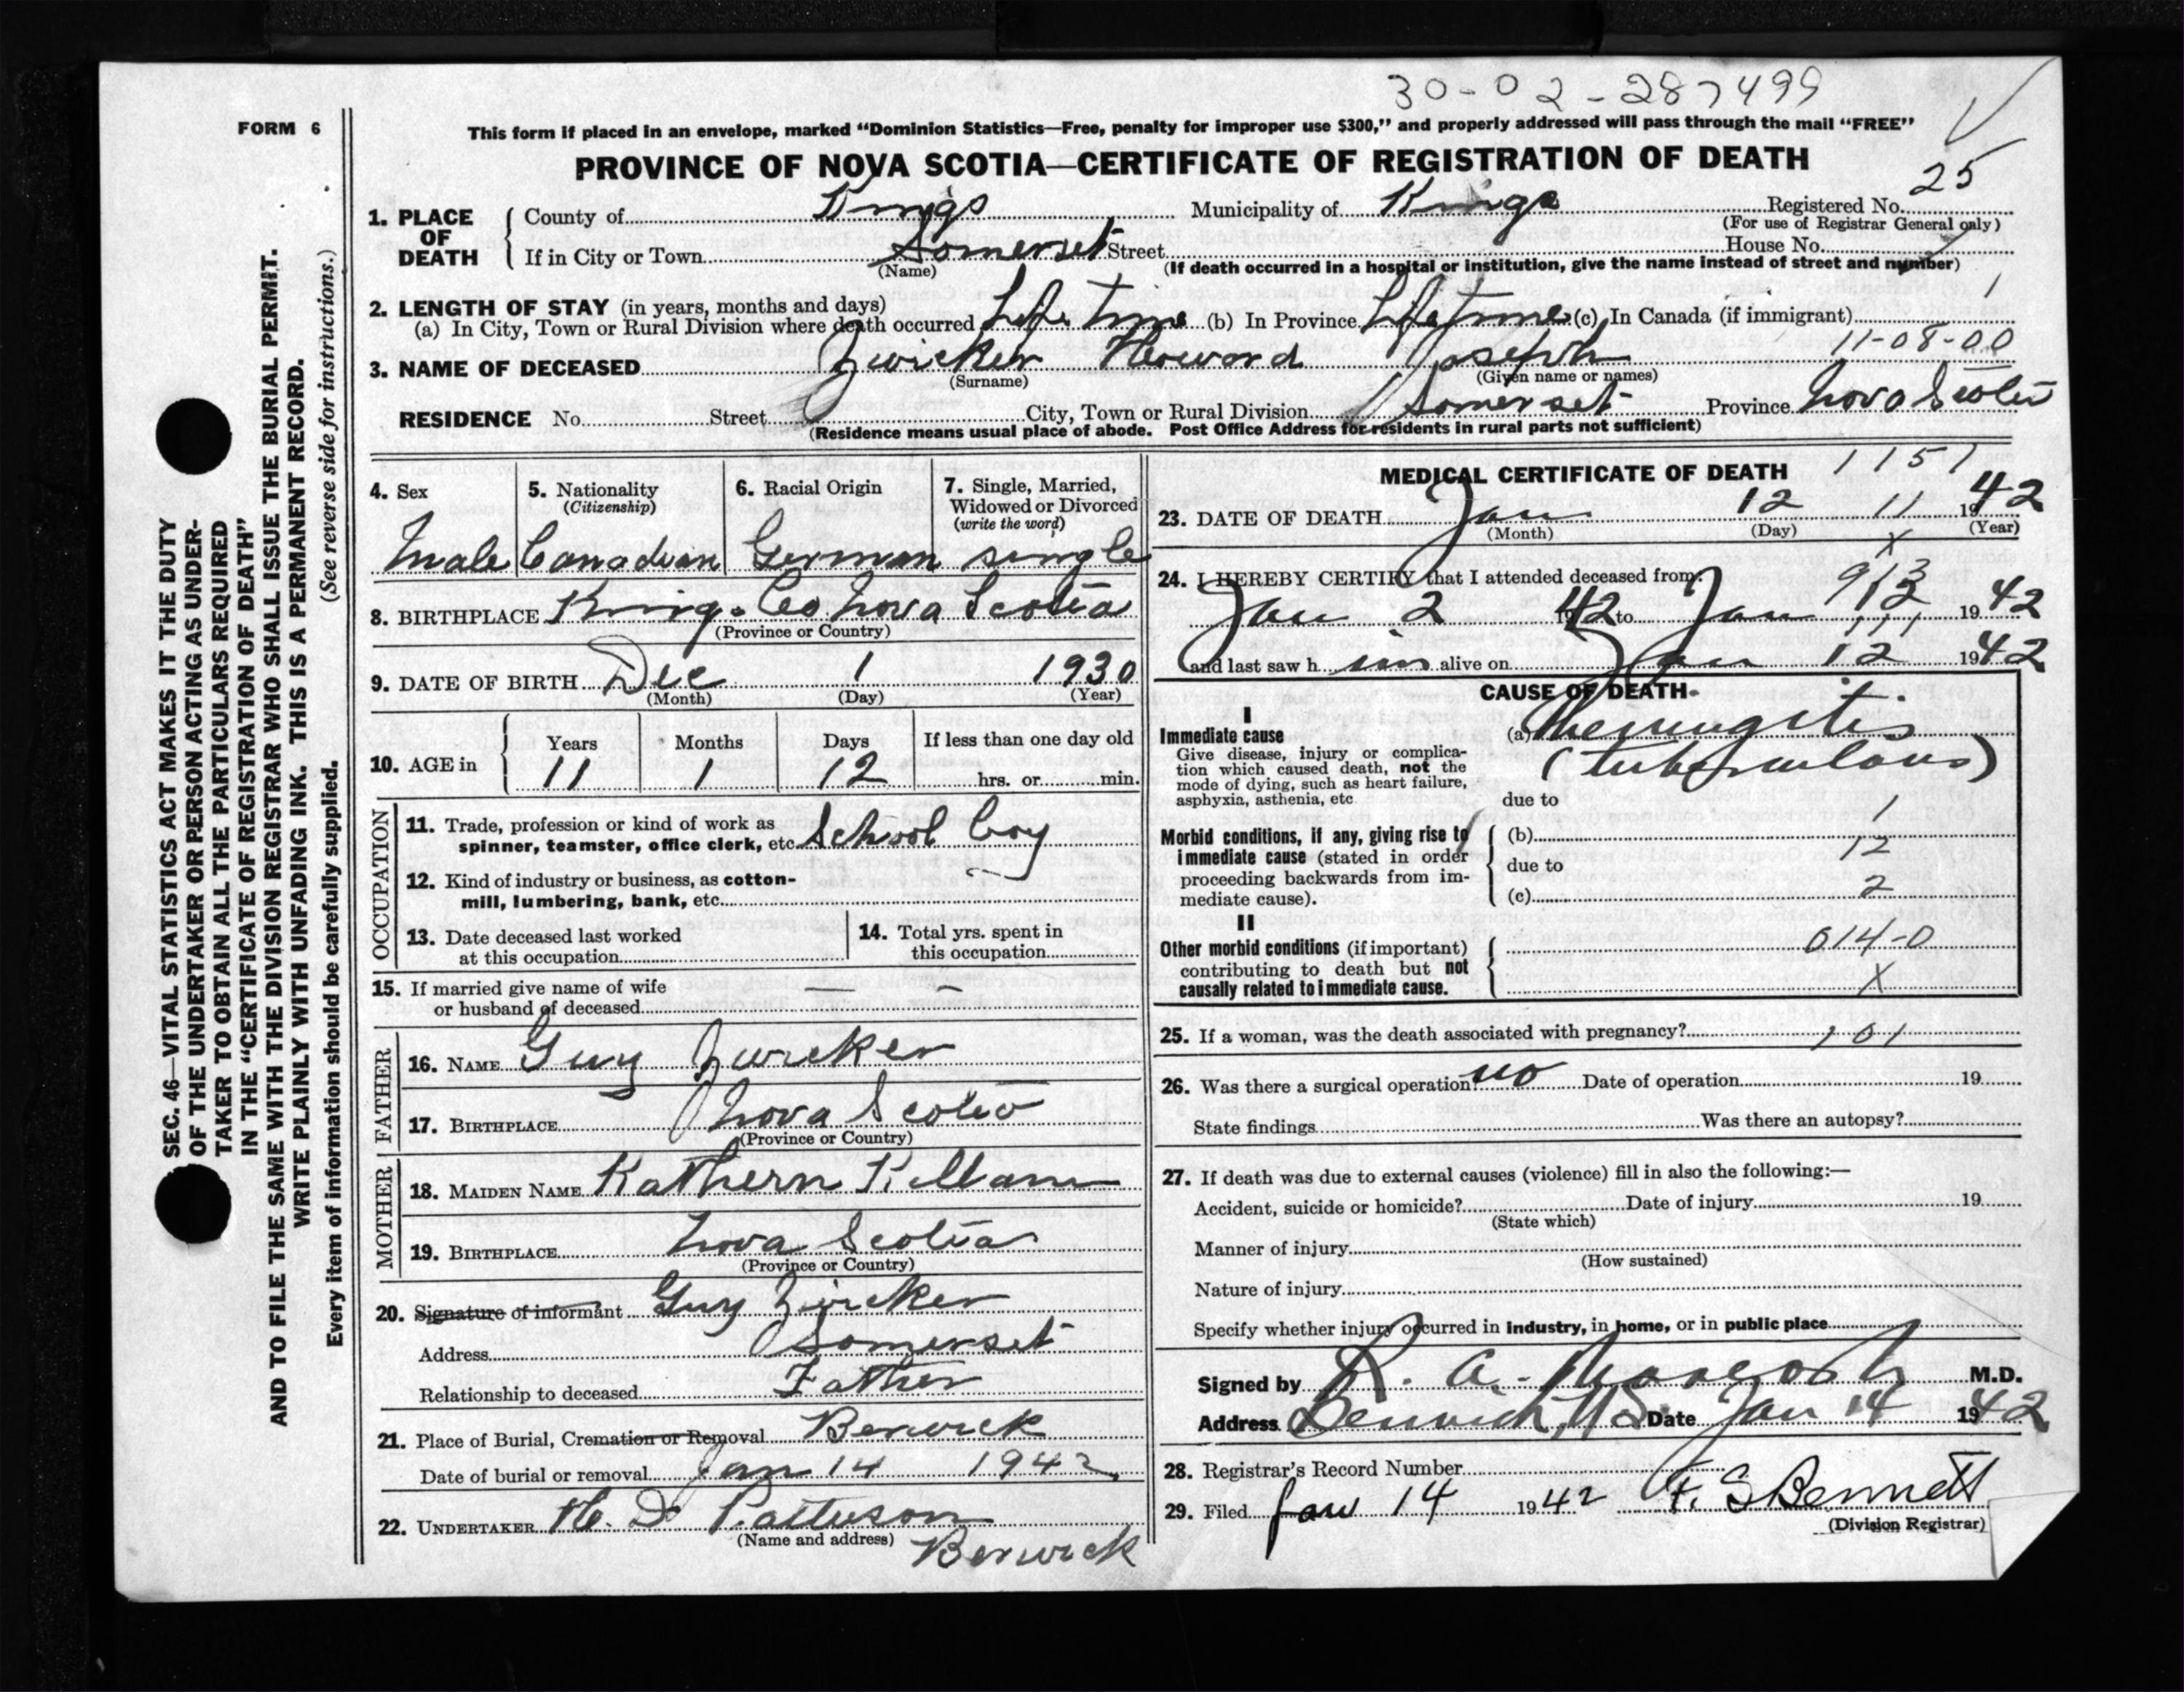 30-02-287499
FORM 6
This form if placed in an envelope, marked “Dominion Statistics—Free, penalty for improper use $300,” and properly addressed will pass through the mail “FREE”
PROVINCE OF NOVA SCOTIA—CERTIFICATE OF REGISTRATION OF DEATH
25
1. PLACE OF DEATH County of Kings Municipality of Kings Registered No.
(For use of Registrar General only)
If in City or Town Somerset Street House No.
(Name) (If death occurred in a hospital or institution, give the name instead of street and number)
2. LENGTH OF STAY (in years, months and days) 1
(a) In City, Town or Rural Division where death occurred Life time (b) In Province Life time (c) In Canada (if immigrant)
11-08-00
3. NAME OF DECEASED Zwicker Howard Joseph
(Surname) (Given name or names)
RESIDENCE No. Street City, Town or Rural Division Somerset Province Nova Scotia
(Residence means usual place of abode. Post Office Address for residents in rural parts not sufficient)
4. Sex 5. Nationality 6. Racial Origin 7. Single, Married,
(Citizenship) Widowed or Divorced
(write the word)
Male Canadian German single
8. BIRTHPLACE Kings Co Nova Scotia
(Province or Country)
9. DATE OF BIRTH Dec 1 1930
(Month) (Day) (Year)
10. AGE in Years Months Days If less than one day old
11 1 12 hrs. or min.
OCCUPATION
11. Trade, profession or kind of work as
spinner, teamster, office clerk, etc. School boy
12. Kind of industry or business, as cotton-
mill, lumbering, bank, etc.
13. Date deceased last worked
at this occupation
14. Total yrs. spent in
this occupation
15. If married give name of wife — —
or husband of deceased
FATHER
16. NAME Guy Zwicker
17. BIRTHPLACE Nova Scotia
(Province or Country)
MOTHER
18. MAIDEN NAME Kathern Killam
19. BIRTHPLACE Nova Scotia
(Province or Country)
20. Signature of informant Guy Zwicker
Address Somerset
Relationship to deceased Father
21. Place of Burial, Cremation or Removal Berwick
Date of burial or removal Jan 14 1942
22. UNDERTAKER H. D. Patterson
(Name and address) Berwick
MEDICAL CERTIFICATE OF DEATH 1151
23. DATE OF DEATH Jan 12 11 1942
(Month) (Day) (Year)
X
24. I HEREBY CERTIFY that I attended deceased from: 913
Jan 2 1942 to Jan 12 1942
and last saw h im alive on Jan 12 1942
CAUSE OF DEATH
I
Immediate cause (a) Meningitis
Give disease, injury or complica-
tion which caused death, not the (tuberculous)
mode of dying, such as heart failure,
asphyxia, asthenia, etc
due to 1
Morbid conditions, if any, giving rise to (b)
immediate cause (stated in order due to 12
proceeding backwards from im-
mediate cause). (c) 2
II
Other morbid conditions (if important) 014-0
contributing to death but not
causally related to immediate cause. X
25. If a woman, was the death associated with pregnancy? 101
26. Was there a surgical operation? no Date of operation 19
State findings Was there an autopsy?
27. If death was due to external causes (violence) fill in also the following:—
Accident, suicide or homicide? Date of injury 19
(State which)
Manner of injury
(How sustained)
Nature of injury
Specify whether injury occurred in industry, in home, or in public place
Signed by R. A. M.D.
Address Berwick, N.S. Date Jan 14 1942
28. Registrar's Record Number
29. Filed Jan 14 1942 F. S Bennett
(Division Registrar)
SEC. 46—VITAL STATISTICS ACT MAKES IT THE DUTY
OF THE UNDERTAKER OR PERSON ACTING AS UNDER-
TAKER TO OBTAIN ALL THE PARTICULARS REQUIRED
IN THE “CERTIFICATE OF REGISTRATION OF DEATH”
AND TO FILE THE SAME WITH THE DIVISION REGISTRAR WHO SHALL ISSUE THE BURIAL PERMIT.
WRITE PLAINLY WITH UNFADING INK. THIS IS A PERMANENT RECORD.
Every item of information should be carefully supplied. (See reverse side for instructions.)